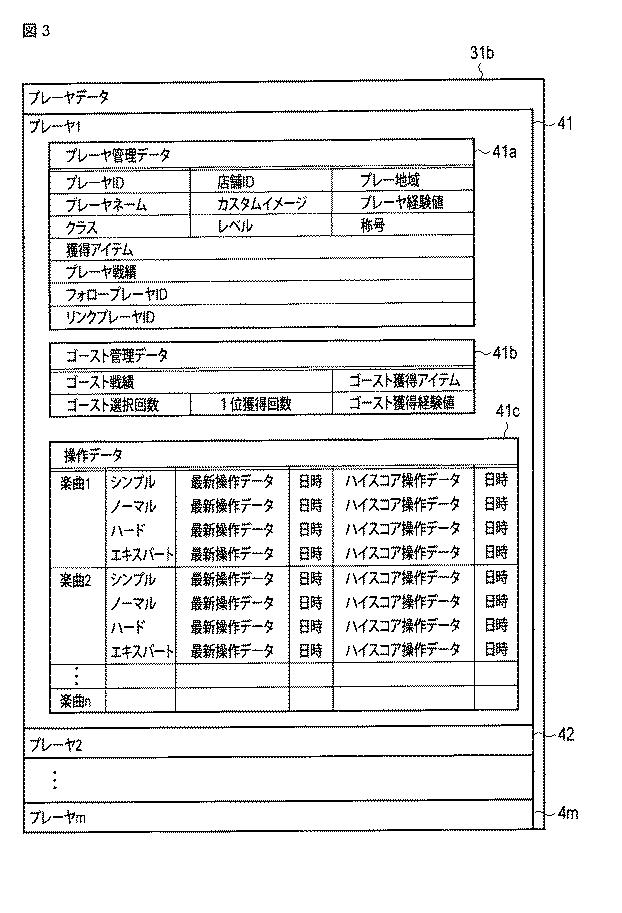 図3
31b
プレーヤデータ
プレーヤ1
41
プレーヤ管理データ
41a
プレーヤID 店舗ID プレー地域
プレーヤネーム カスタムイメージ プレーヤ経験値
クラス レベル 称号
獲得アイテム
プレーヤ戦績
フォロープレーヤID
リンクプレーヤID
ゴースト管理データ
41b
ゴースト戦績 ゴースト獲得アイテム
ゴースト選択回数 1位獲得回数 ゴースト獲得経験値
41c
操作データ
楽曲1 シンプル 最新操作データ 日時 ハイスコア操作データ 日時
ノーマル 最新操作データ 日時 ハイスコア操作データ 日時
ハード 最新操作データ 日時 ハイスコア操作データ 日時
エキスパート 最新操作データ 日時 ハイスコア操作データ 日時
楽曲2 シンプル 最新操作データ 日時 ハイスコア操作データ 日時
ノーマル 最新操作データ 日時 ハイスコア操作データ 日時
ハード 最新操作データ 日時 ハイスコア操作データ 日時
エキスパート 最新操作データ 日時 ハイスコア操作データ 日時
⋮
楽曲n
プレーヤ2
42
⋮
プレーヤm
4m